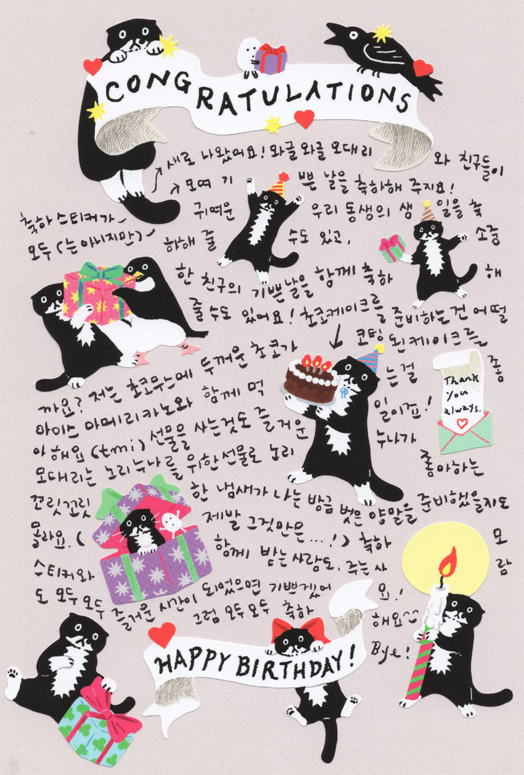 CONGRATULATIONS
새로 나왔어요! 와글 와글 오대리 와 친구들이
모여 기 쁜 날을 축하해 주지요!
귀여운 우리 동생의 생 일을 축
축하 스티커가~
모두 (는 아니지만)~
하해 줄 수도 있고, 소중
한 친구의 기쁜날을 함께 축하 해
줄수도 있어요! 초코케이크를 준비하는건 어떨
까요? 저는 초코무스에 두꺼운 초코가 코팅 된 케이크를
아이스 아메리카노와 함께 먹 는걸 좋
아해요 (tmi) 선물을 사는것도 즐거운 일이죠!
오대리는 노리누나를 위한선물로 노리 누나가 좋아하는
꼬릿꼬릿 한 냄새가 나는 방금 벗은 양말을 준비했을지도
몰라요. ( 제발 그것만은...!) 축하
스티커와 함께 받는사람도, 주는 사 람
도 모두 모두 즐거운 시간이 되었으면 기쁘겠어 요!
그럼 모두모두 축하 해요~
Bye!
Thank
you
always.
HAPPY BIRTHDAY!